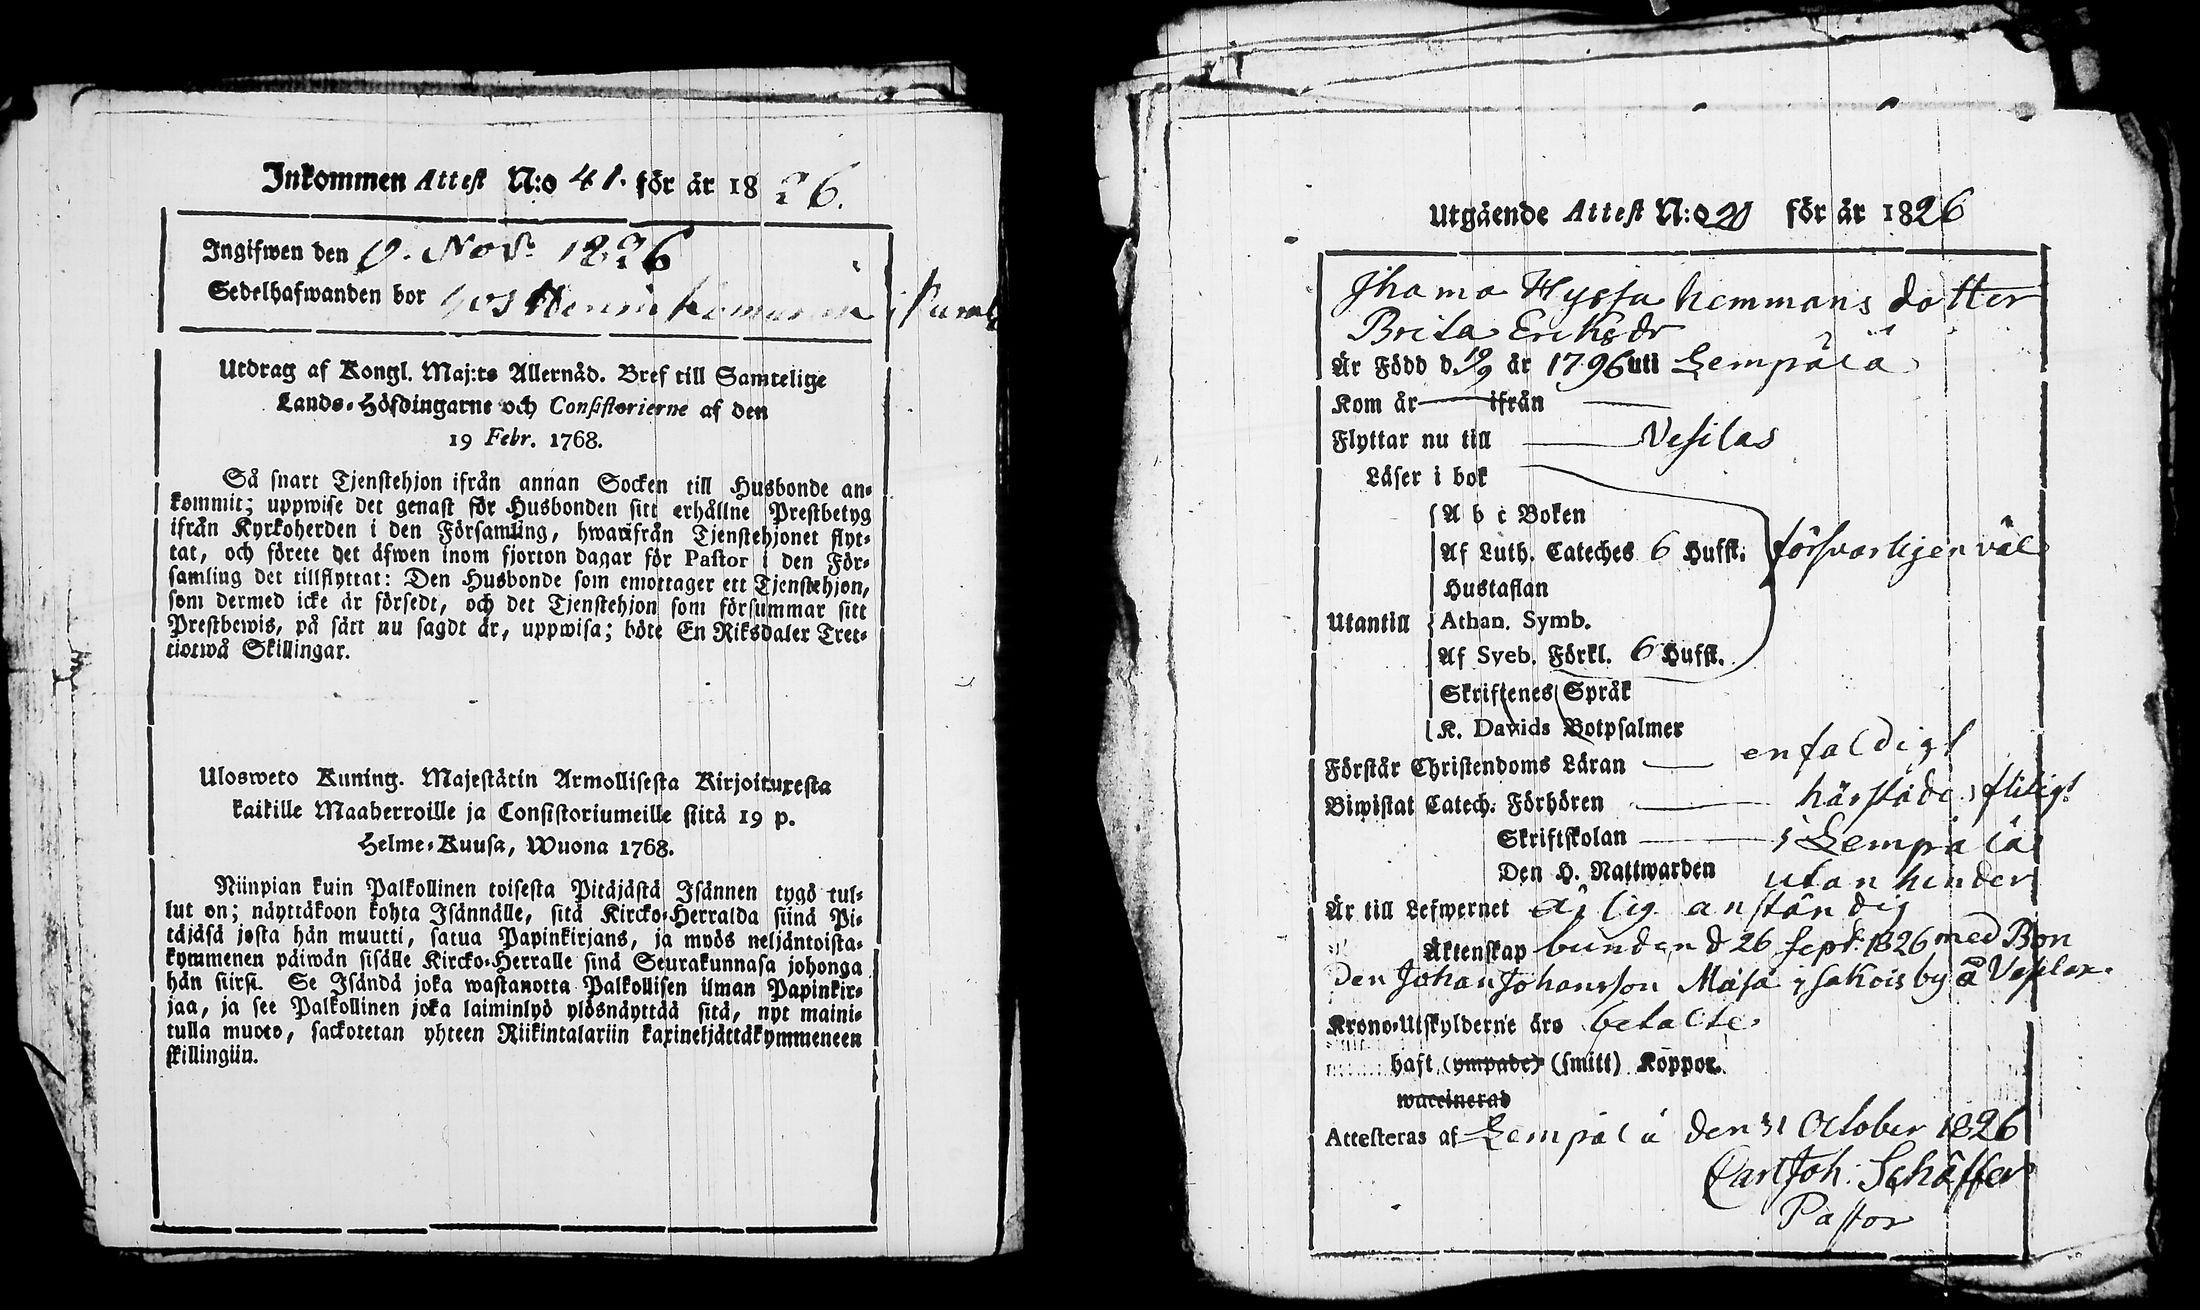 Inkommen Attest N:o 41. för år 1826.
Ingifwen den 9. Nov. 1826
Sedelhafwanden bor hos
Utdrag af Kongl. Maj:ts Allernåd. Bref till Samtelige
Lands-Höfdingarne och Consistorierne af den
19 Febr. 1768.
Så snart Tjenstehjon ifrån annan Socken till Husbonde an-
kommit; uppwise det genast för Husbonden sitt erhållne Prestbetyg
ifrån Kyrkoherden i den Församling, hwarifrån Tjenstehjonet flyt-
tat, och förete det äfwen inom fjorton dagar för Pastor i den För-
samling det tillflyttat: Den Husbonde som emottager ett Tjenstehjon,
som dermed icke är försedt, och det Tjenstehjon som försummar sitt
Prestbewis, på sätt nu sagdt är, uppwisa; böte En Riksdaler Tret-
tiotwå Skillingar.
Ulosweto Kuning. Majestätin Armollisesta Kirjoituxesta
kaikille Maaherroille ja Consistoriumeille siitä 19 p.
Helme-Kuusa, Wuona 1768.
Niinpian kuin Palkollinen toisesta Pitäjästä Isännen tygö tul-
lut on; näyttäkoon kohta Isännälle, sitä Kircko-Herralda siinä Pi-
täjäsä josta hän muutti, saatua Papinkirjans, ja myös neljäntoista-
kymmenen päiwän sisälle Kircko-Herralle sinä Seurakunnasa johonga
hän siirsi. Se Isändä joka wastanotta Palkollisen ilman Papinkir-
jaa, ja see Palkollinen joka laiminlyö ylösnäyttää sitä, nyt maini-
tulla muoto, sackotetan yhteen Riikintalariin kaxineljättäkymmeneen
skillingiin.
Utgående Attest N:o 20 för år 1826
Jhama Hyssa hemmans dotter
Brita Eriksdr
Är Född d. 19/9 år 1796 uti Lempälä
Kom år — ifrån —
Flyttar nu till — Vesilas
Läser i bok
A b c Boken
Af Luth. Cateches 6 Hufst. försvarligen väl
Hustaflan
Utantill Athan. Symb.
Af Sveb. Förkl. 6 Hufst.
Skriftenes Språk
K. Davids Botpsalmer
Förstår Christendoms Läran — enfaldigt
Biwistat Catech. Förhören — härstädes flitigt
Skriftskolan — i Lempälä
Den H. Nattwarden utan hinder
Är till Lefwernet ärlig anständig
Äktenskap bunden d 26 Sept. 1826 med Bon
den Johan Johansson Mäsä i Sakois by å Vesilax.
Krono-Utskylderne äro betalte
haft (ympade) (smitt) Koppor.
waccinerad
Attesteras af Lempälä den 31 October 1826
Carl Joh: Schäffer
Pastor